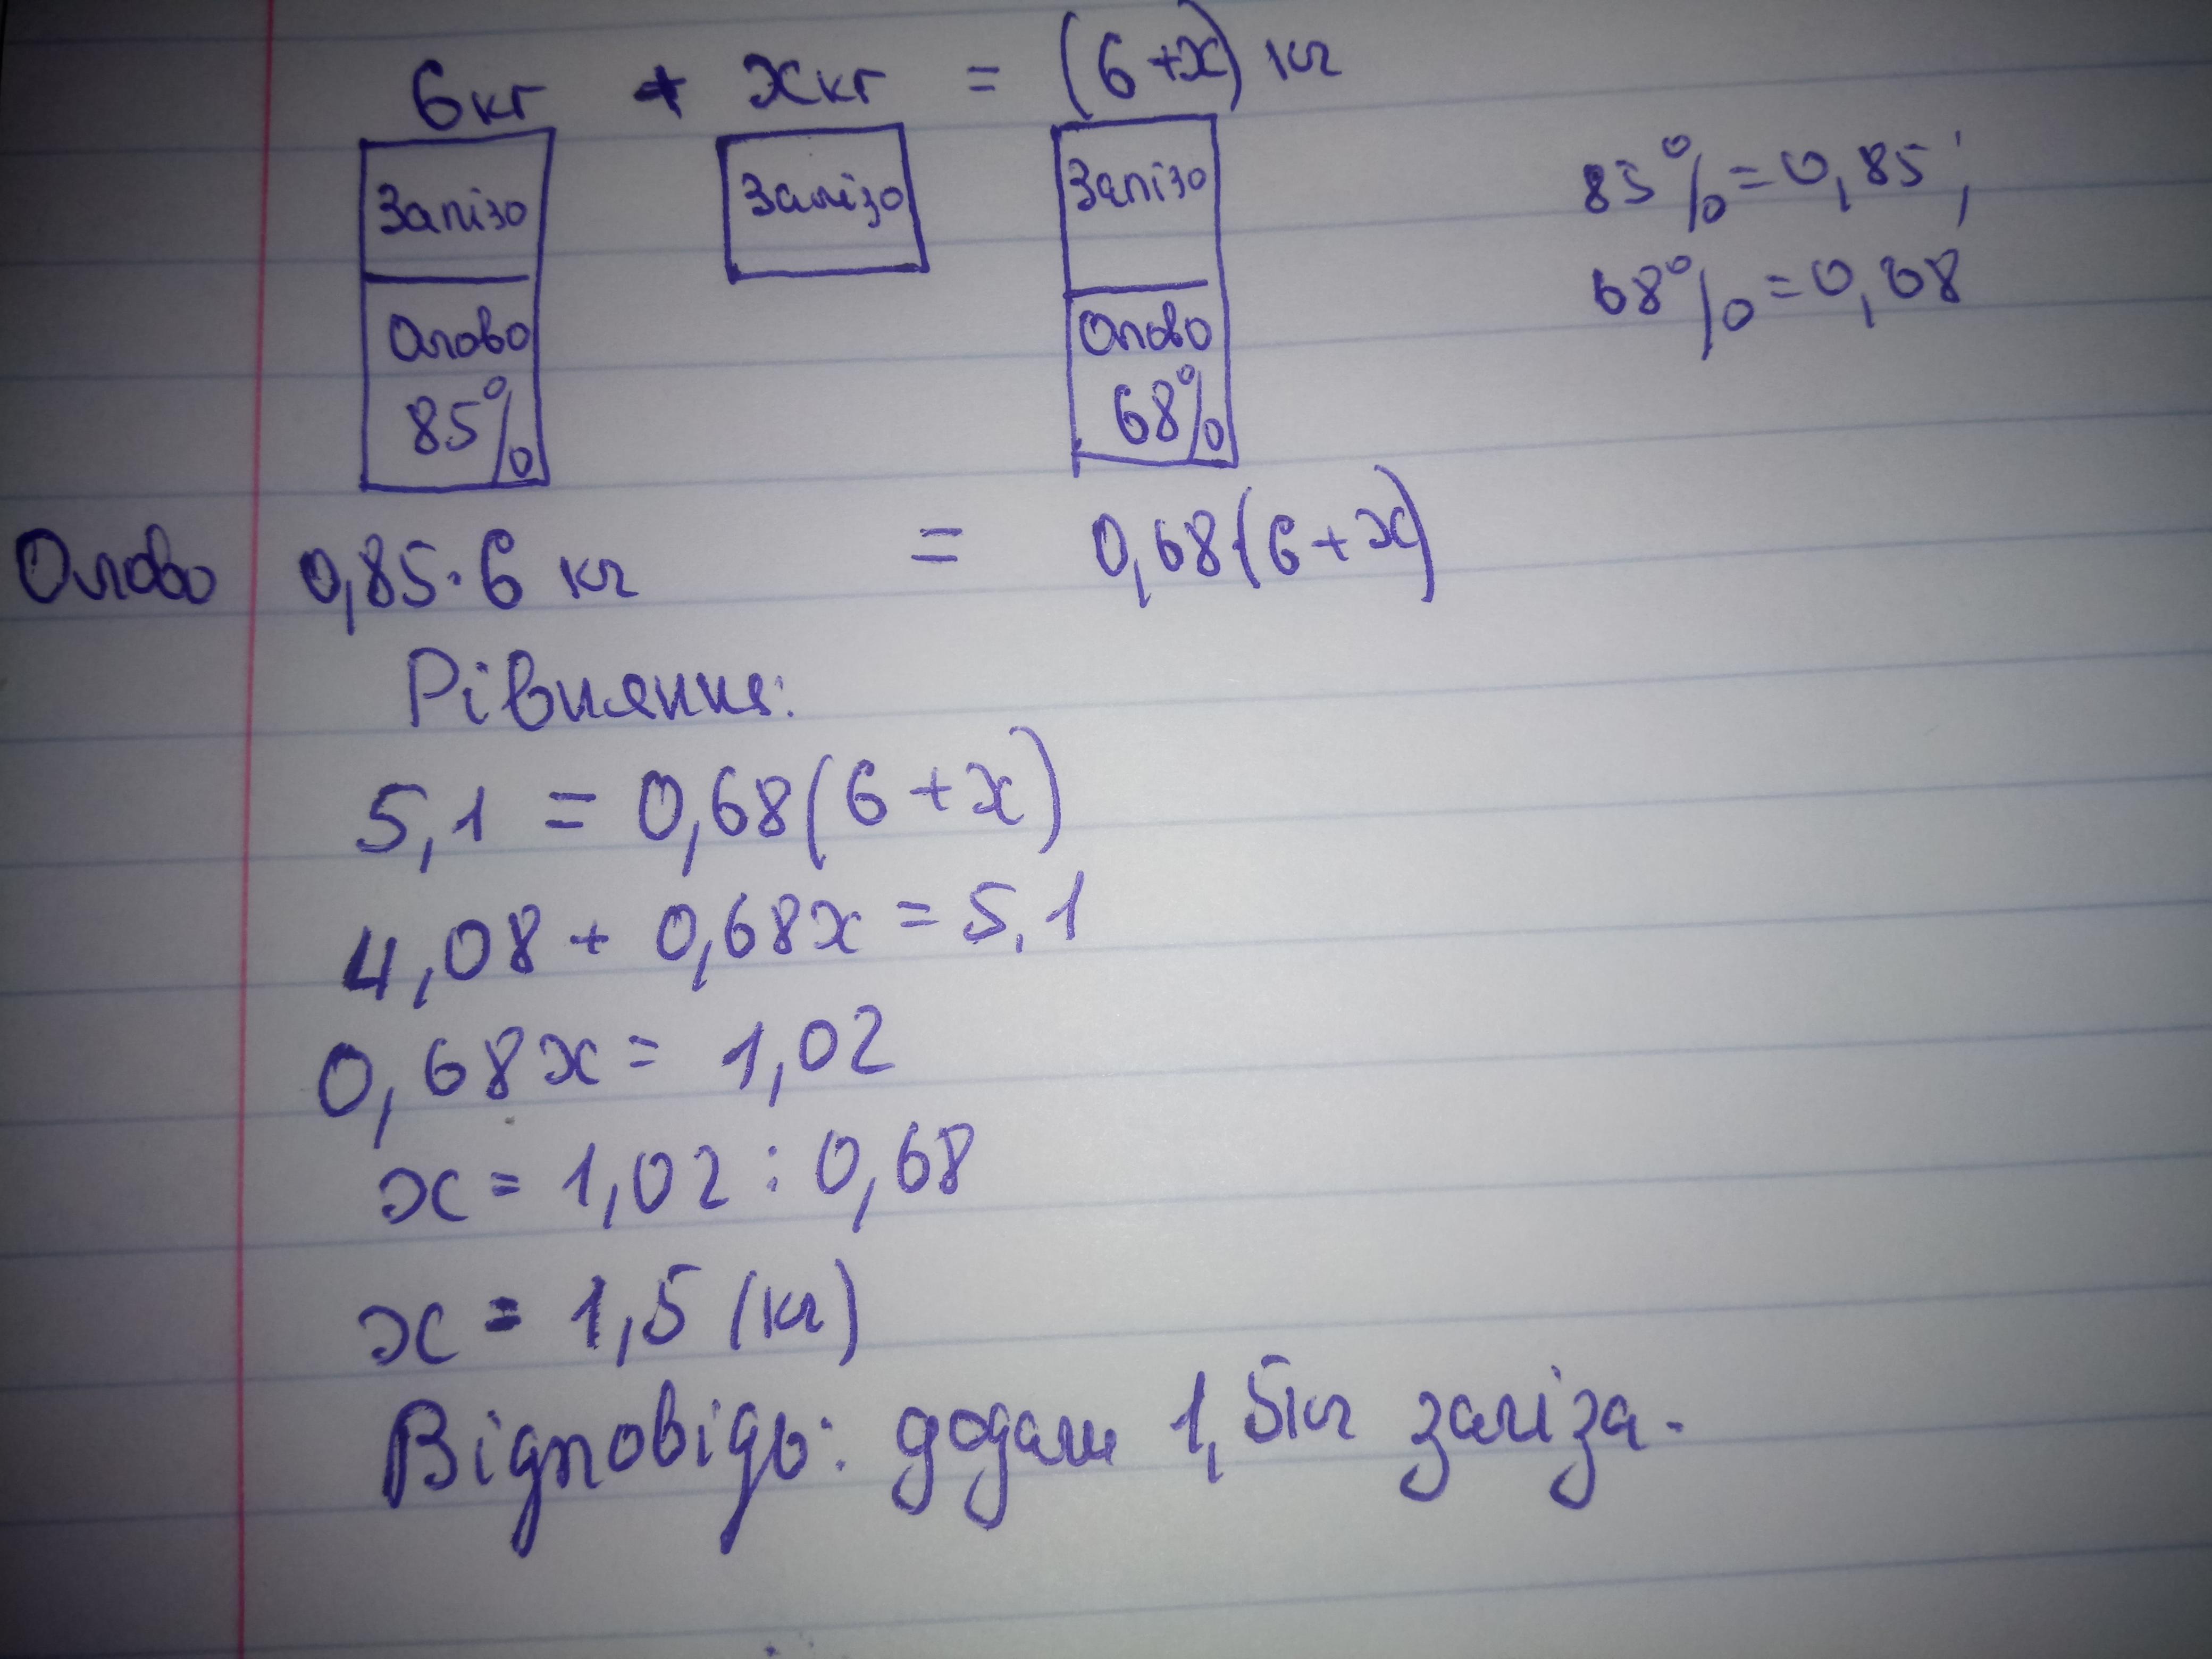 6кг + xкг = (6+x) кг
Залізо Залізо Залізо
85%=0,85;
68%=0,68
Олово Олово
85% 68%
Олово 0,85·6 кг = 0,68(6+x)
Рівняння:
5,1 = 0,68(6+x)
4,08 + 0,68x = 5,1
0,68x = 1,02
x = 1,02 : 0,68
x = 1,5 (кг)
Відповідь: додали 1,5кг заліза.